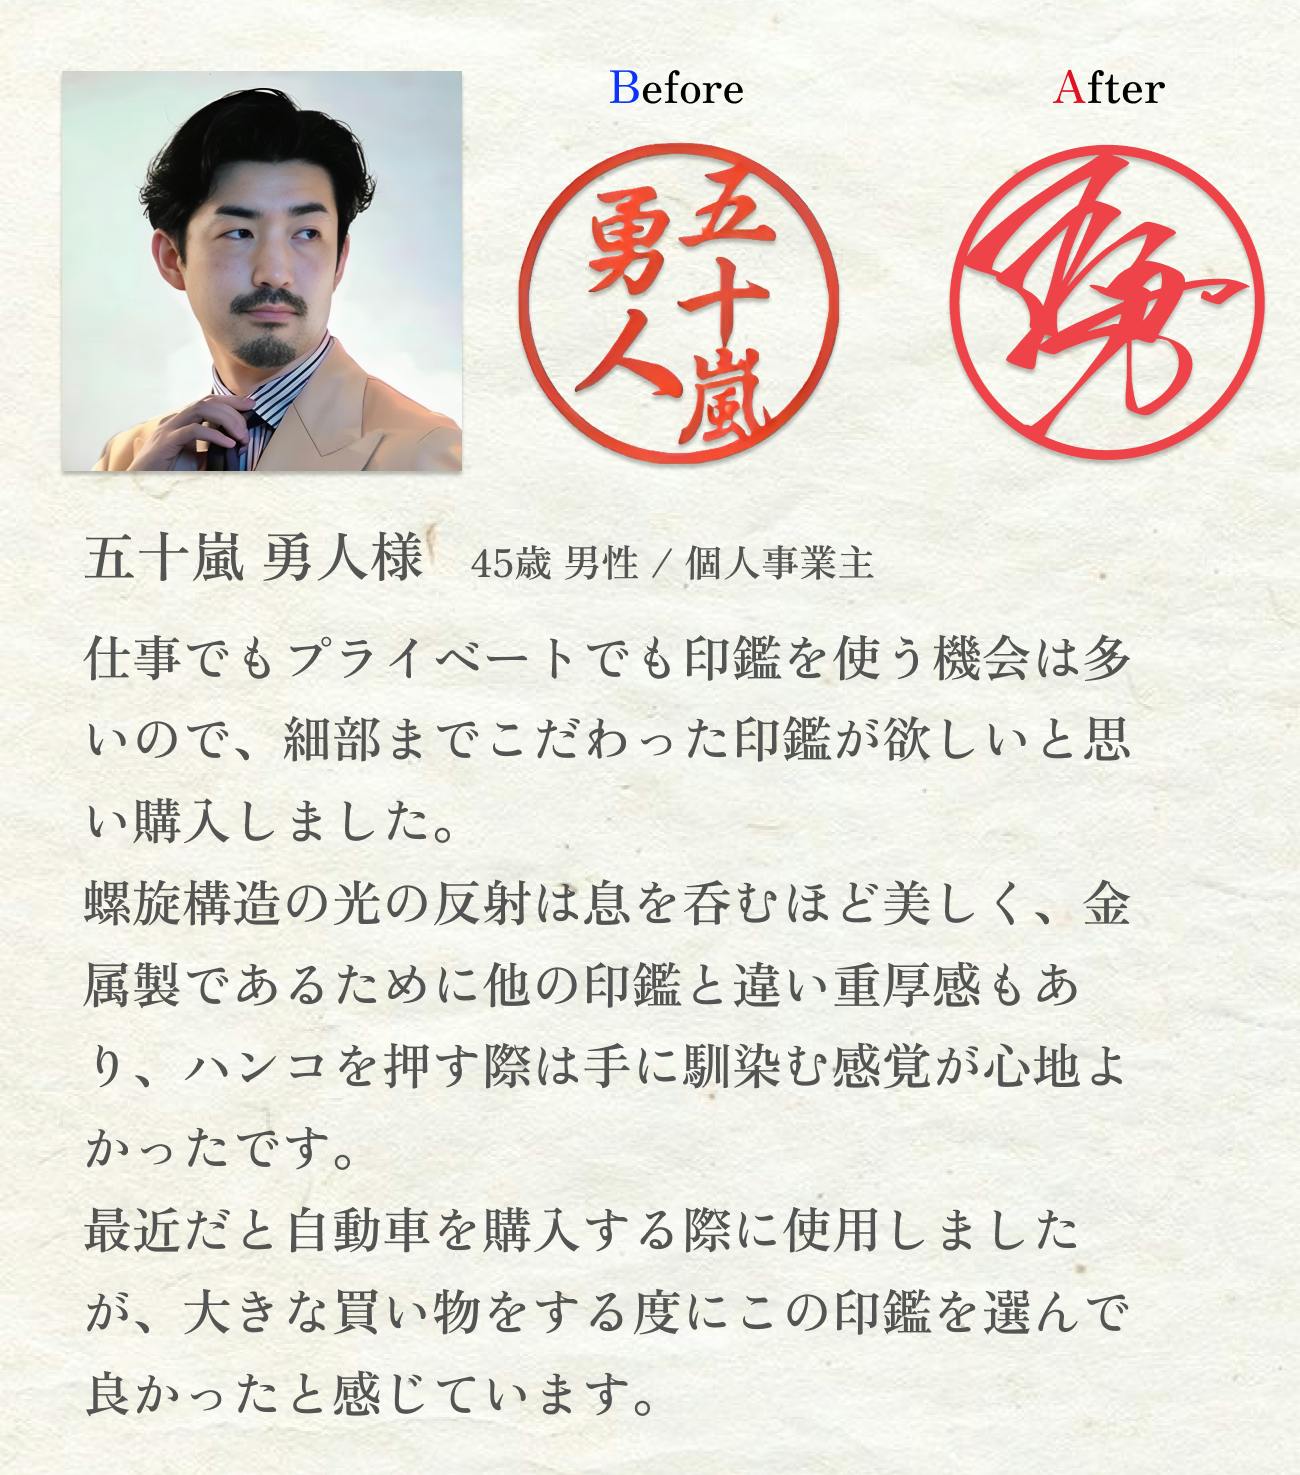 Before
After
五十嵐
勇人
五十嵐 勇人様 45歳 男性 / 個人事業主
仕事でもプライベートでも印鑑を使う機会は多
いので、細部までこだわった印鑑が欲しいと思
い購入しました。
螺旋構造の光の反射は息を呑むほど美しく、金
属製であるために他の印鑑と違い重厚感もあ
り、ハンコを押す際は手に馴染む感覚が心地よ
かったです。
最近だと自動車を購入する際に使用しました
が、大きな買い物をする度にこの印鑑を選んで
良かったと感じています。